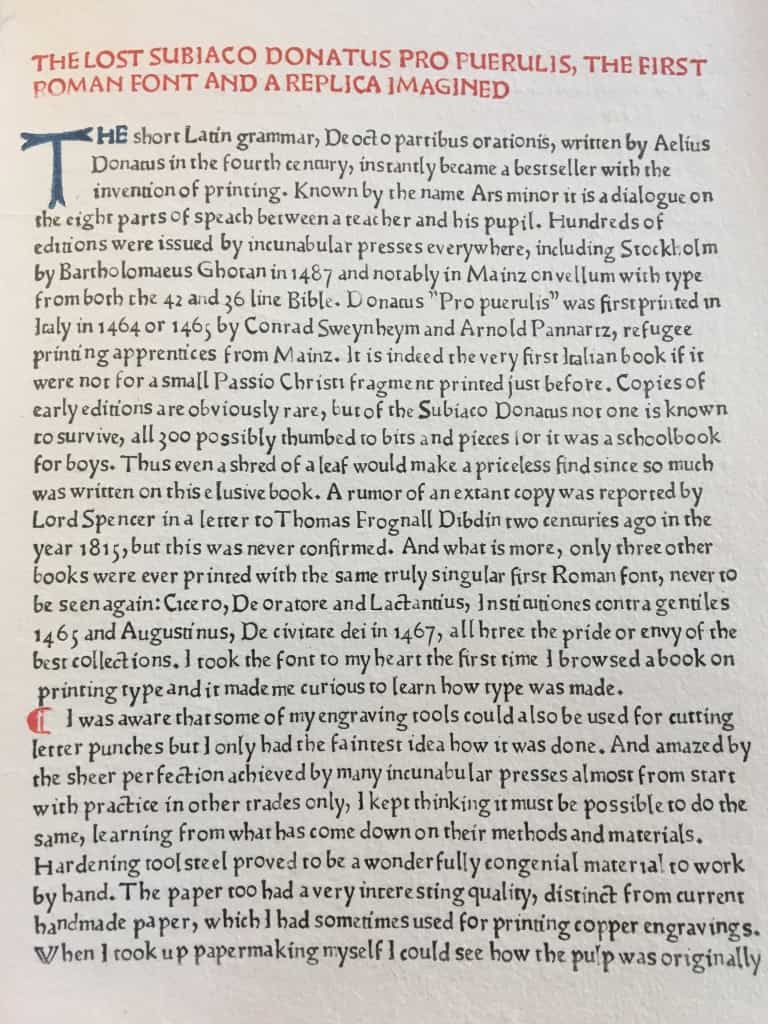 THE LOST SUBIACO DONATUS PRO PUERULIS, THE FIRST
ROMAN FONT AND A REPLICA IMAGINED
THE short Latin grammar, De octo partibus orationis, written by Aelius
Donatus in the fourth century, instantly became a bestseller with the
invention of printing. Known by the name Ars minor it is a dialogue on
the eight parts of speach between a teacher and his pupil. Hundreds of
editions were issued by incunabular presses everywhere, including Stockholm
by Bartholomaeus Ghotan in 1487 and notably in Mainz on vellum with type
from both the 42 and 36 line Bible. Donatus "Pro puerulis" was first printed in
Italy in 1464 or 1465 by Conrad Sweynheym and Arnold Pannartz, refugee
printing apprentices from Mainz. It is indeed the very first Italian book if it
were not for a small Passio Christi fragment printed just before. Copies of
early editions are obviously rare, but of the Subiaco Donatus not one is known
to survive, all 300 possibly thumbed to bits and pieces for it was a schoolbook
for boys. Thus even a shred of a leaf would make a priceless find since so much
was written on this elusive book. A rumor of an extant copy was reported by
Lord Spencer in a letter to Thomas Frognall Dibdin two centuries ago in the
year 1815, but this was never confirmed. And what is more, only three other
books were ever printed with the same truly singular first Roman font, never to
be seen again: Cicero, De oratore and Lactantius, Institutiones contra gentiles
1465 and Augustinus, De civitate dei in 1467, all htree the pride or envy of the
best collections. I took the font to my heart the first time I browsed a book on
printing type and it made me curious to learn how type was made.
I was aware that some of my engraving tools could also be used for cutting
letter punches but I only had the faintest idea how it was done. And amazed by
the sheer perfection achieved by many incunabular presses almost from start
with practice in other trades only, I kept thinking it must be possible to do the
same, learning from what has come down on their methods and materials.
Hardening tool steel proved to be a wonderfully congenial material to work
by hand. The paper too had a very interesting quality, distinct from current
handmade paper, which I had sometimes used for printing copper engravings.
When I took up papermaking myself I could see how the pulp was originally